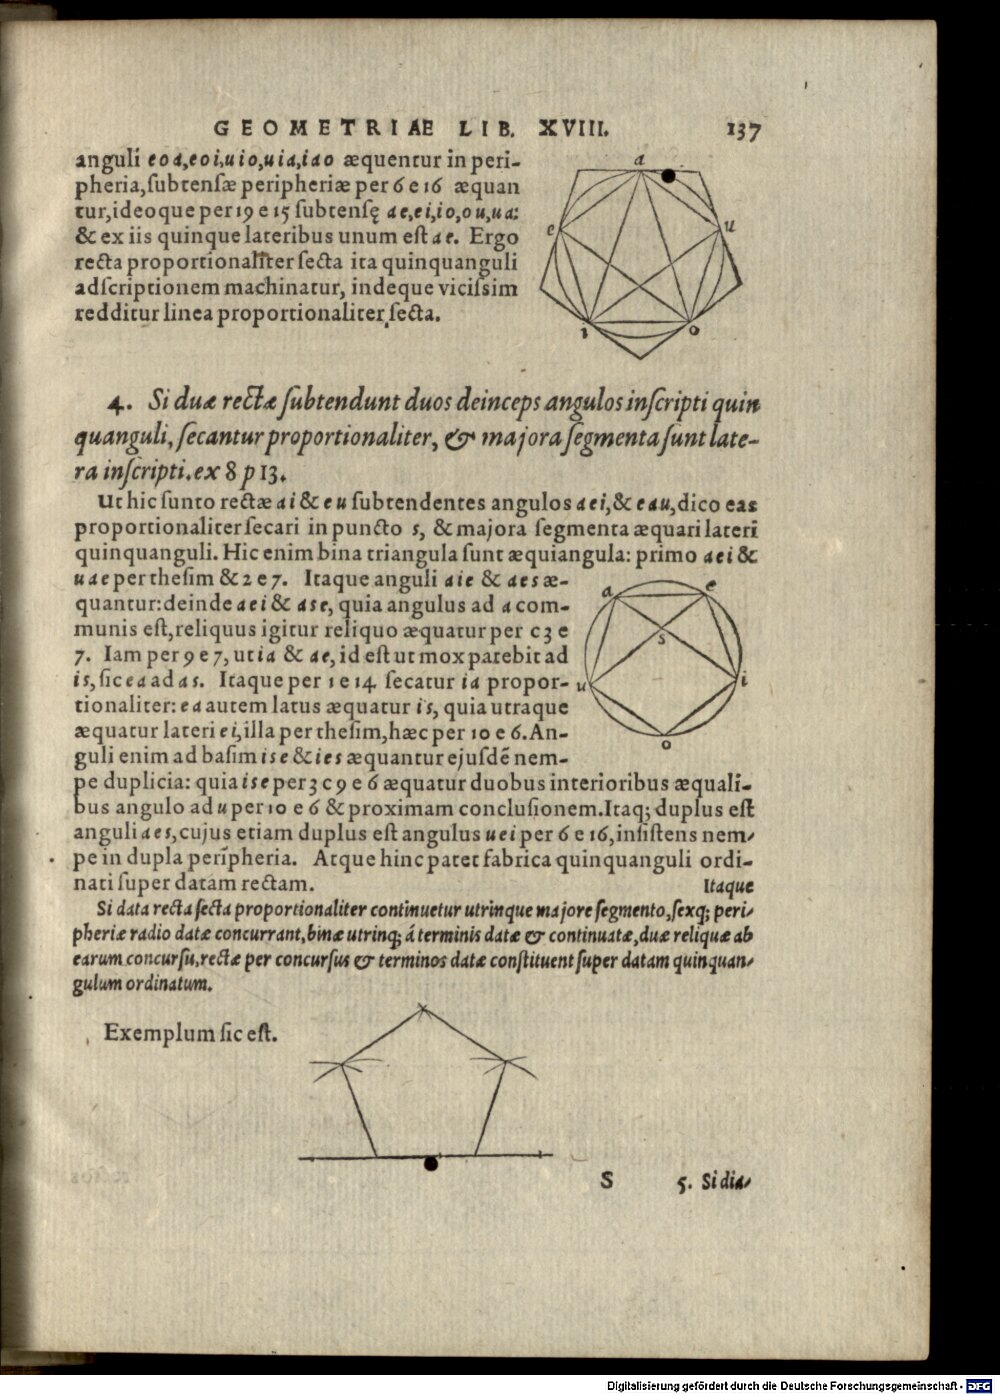 GEOMETRIAE LIB. XVIII. 137
anguli eoa,eoi,uio,uia,iao æquentur in peri-
pheria,subtensæ peripheriæ per 6 e 16 æquan
tur,ideoque per 19 e 15 subtensę ae,ei,io,ou,ua:
& ex iis quinque lateribus unum est ae. Ergo
recta proportionaliter secta ita quinquanguli
adscriptionem machinatur, indeque vicissim
redditur linea proportionaliter secta.
a
e
u
i
o
4. Si duæ rectæ subtendunt duos deinceps angulos inscripti quin
quanguli, secantur proportionaliter, & majora segmenta sunt late-
ra inscripti. ex 8 p 13.
Ut hic sunto rectæ ai & eu subtendentes angulos aei,& eau,dico eas
proportionaliter secari in puncto s, & majora segmenta æquari lateri
quinquanguli. Hic enim bina triangula sunt æquiangula: primo aei &
uae per thesim & 2 e 7. Itaque anguli aie & aes æ-
quantur: deinde aei & ase, quia angulus ad a com-
munis est,reliquus igitur reliquo æquatur per c 3 e
7. Iam per 9 e 7, ut ia & ae, id est ut mox patebit ad
is, sic ea ad as. Itaque per 1 e 14 secatur ia propor-
tionaliter: ea autem latus æquatur is, quia utraque
æquatur lateri ei,illa per thesim,hæc per 10 e 6. An-
guli enim ad basim ise & ies æquantur ejusdē nem-
pe duplicia: quia ise per 3 c 9 e 6 æquatur duobus interioribus æquali-
bus angulo ad u per 10 e 6 & proximam conclusionem. Itaq; duplus est
anguli aes, cujus etiam duplus est angulus uei per 6 e 16, insistens nem-
pe in dupla peripheria. Atque hinc patet fabrica quinquanguli ordi-
nati super datam rectam. Itaque
a
e
s
u
i
o
Si data recta secta proportionaliter continuetur utrinque majore segmento, sexq; peri-
pheriæ radio datæ concurrant, binæ utrinq; á terminis datæ & continuatæ, duæ reliquæ ab
earum concursu, rectæ per concursus & terminos datæ constituent super datam quinquan-
gulum ordinatum.
Exemplum sic est.
S 5. Si dia-
Digitalisierung gefördert durch die Deutsche Forschungsgemeinschaft - DFG